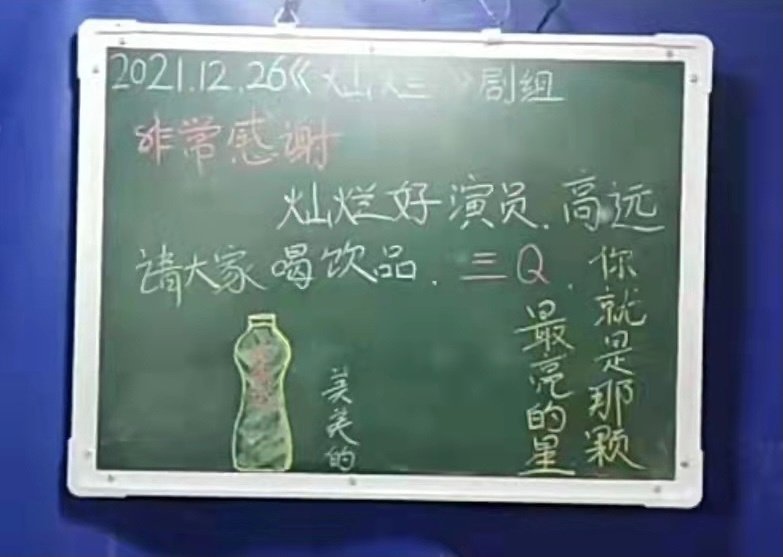 2021.12.26《灿烂》剧组
非常感谢
灿烂好演员.高远
请大家喝饮品.三Q.
你就是那颗
最亮的星
美美的